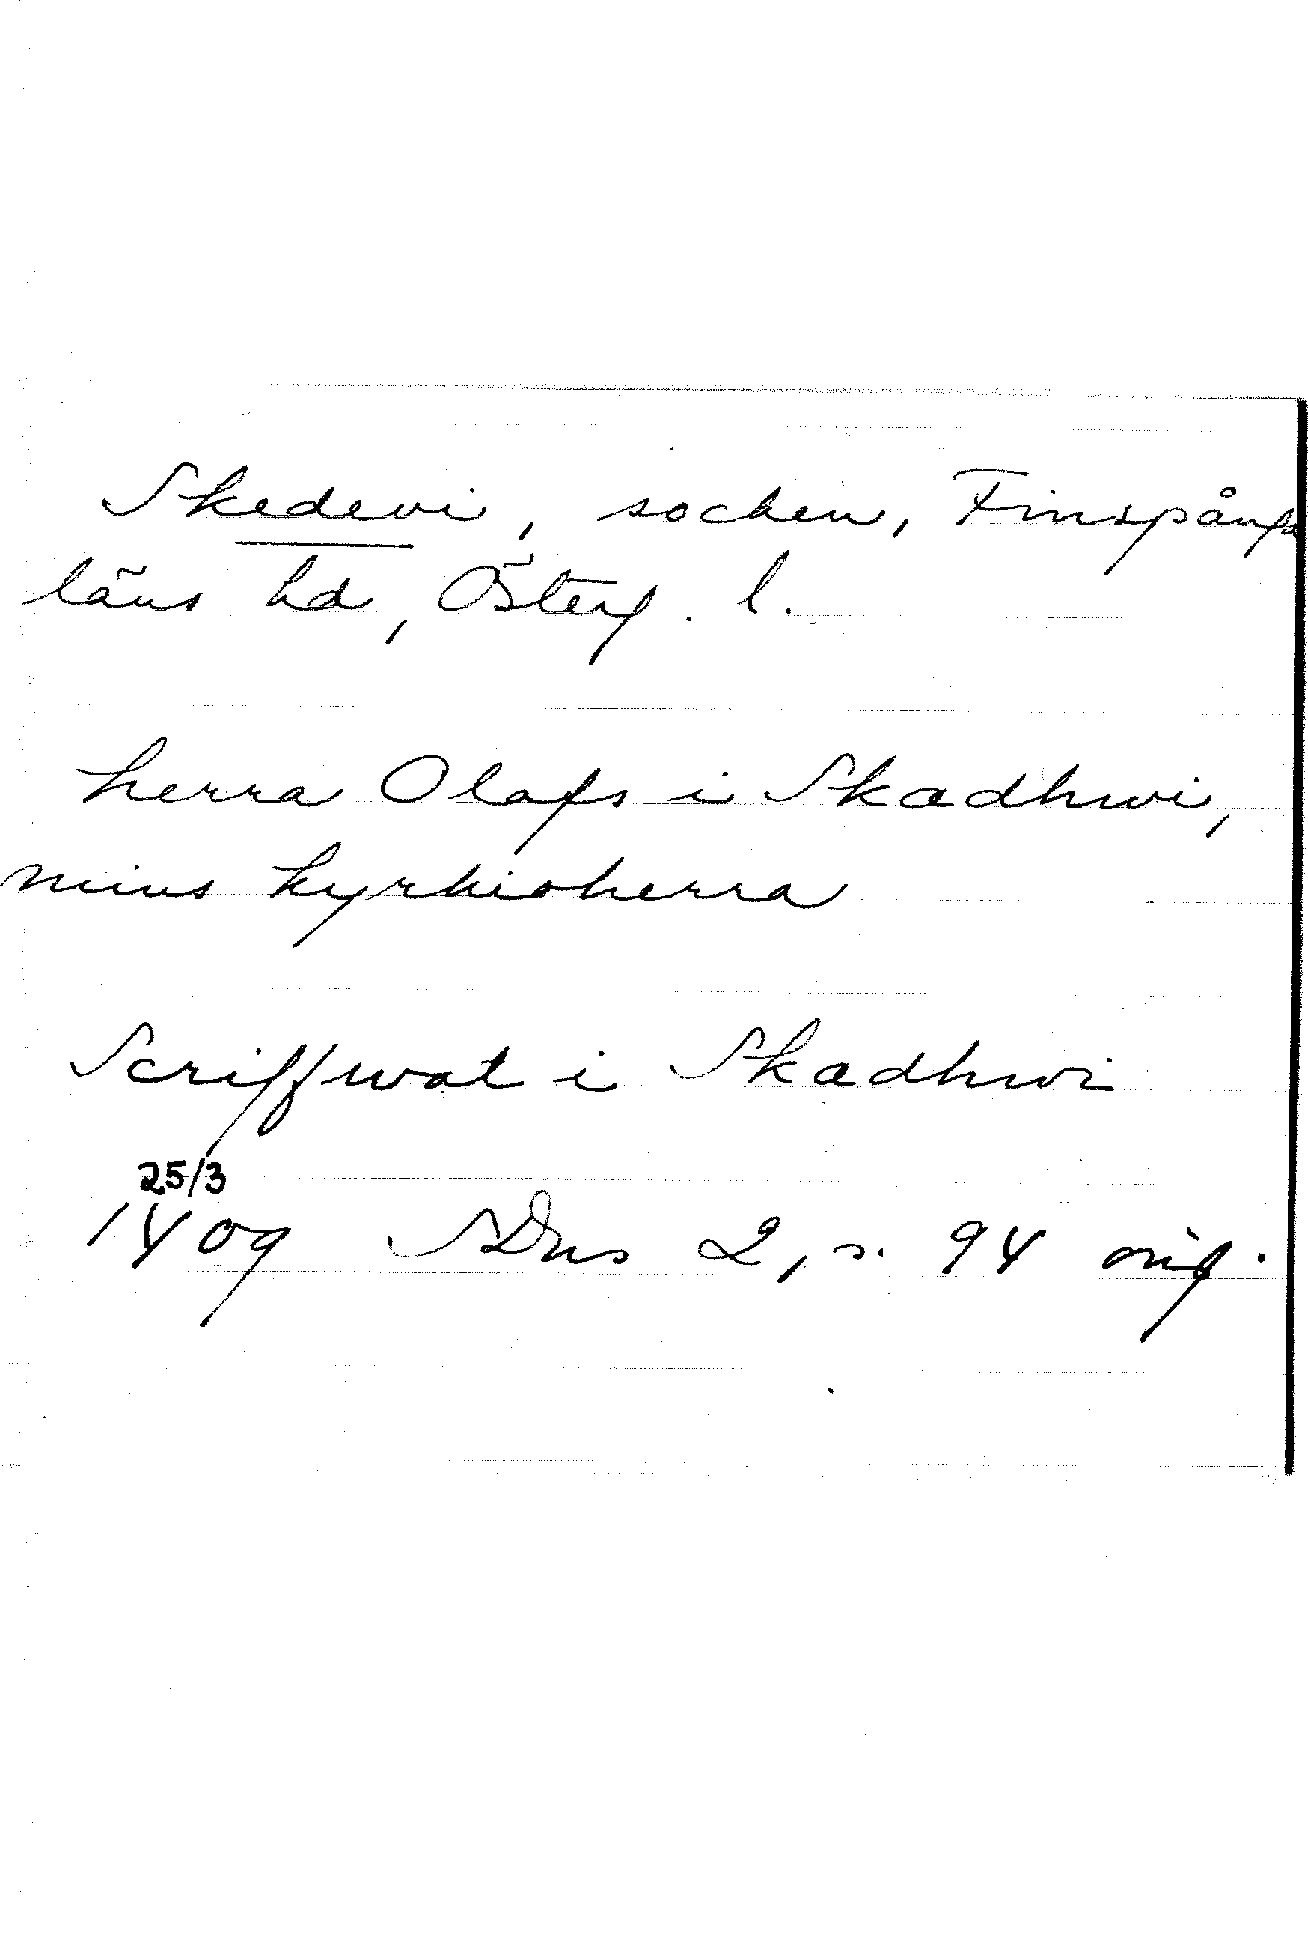 Skedevi, socken, Finspångs
läns hd, Österg. l.
herra Olafs i Skædhwi,
mins kyrkioherra
Scriffwat i Skædhwi
25/3
1409 SDns 2, s. 94 orig.